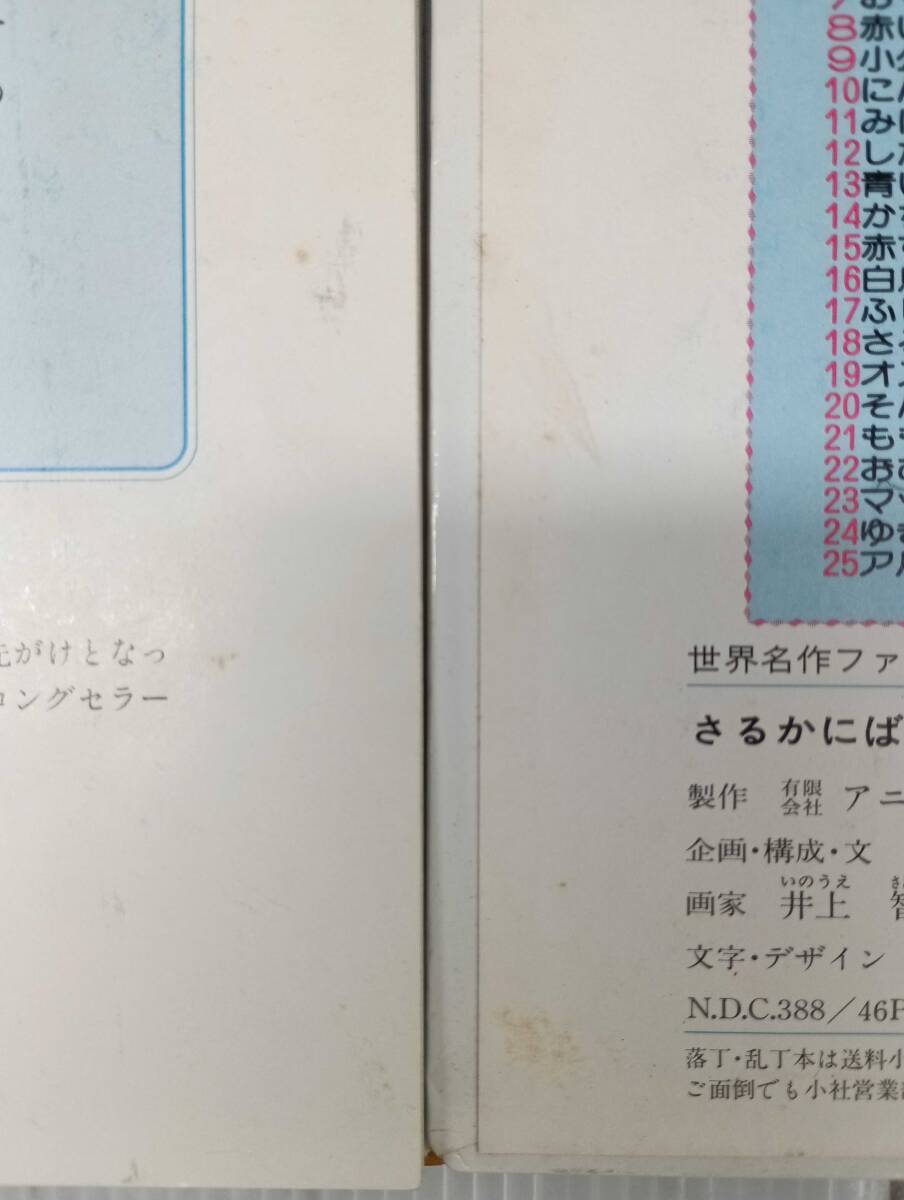 の
先がけとなっ
ロングセラー
7お
8赤い
9小
10にん
11みに
12した
13青い
14かち
15赤ず
16白鳥
17ふし
18さる
19オズ
20そん
21もも
22おむ
23マッ
24ゆき
25アル
世界名作ファ
さるかにば
製作 有限会社 アニ
企画・構成・文
いのうえ さ
画家 井上 智
文字・デザイン
N.D.C.388／46P
落丁・乱丁本は送料小
ご面倒でも小社営業部